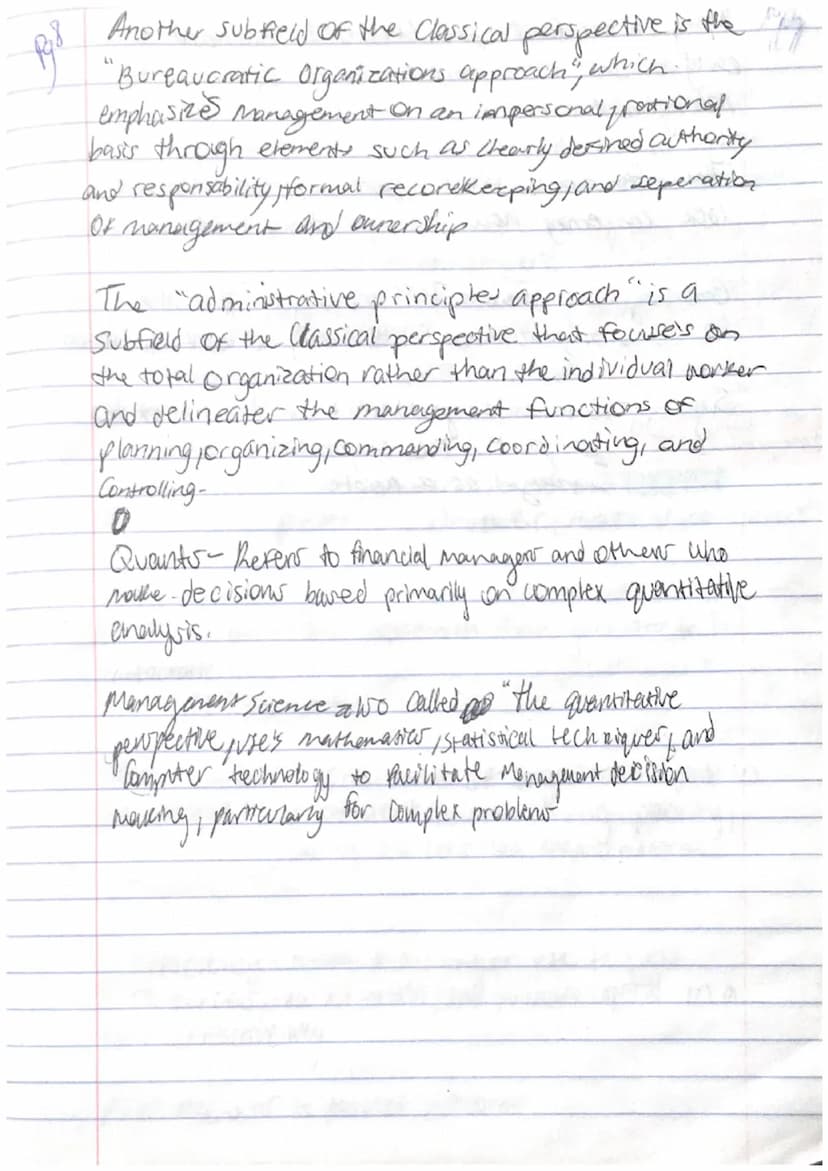 Pg8
Another subfield of the Classical perspective is the
"Bureaucratic Organizations approach", which
emphasizes management on an impersonal, rational
basis through elements such as clearly defined authority
and responsibility, formal recordkeeping, and seperation
of management and ownership
The "administrative principles approach" is a
subfield of the Classical perspective that focuses on
the total organization rather than the individual worker
and delineates the management functions of
planning, organizing, commanding, coordinating, and
Controlling.
Quants - Refers to financial managers and others who
make decisions based primarily on complex quantitative
analysis.
Management Science also called "the quantitative
perspective, uses mathematics, statistical techniques, and
Computer technology to facilitate Management decision
making, particularly for complex problems